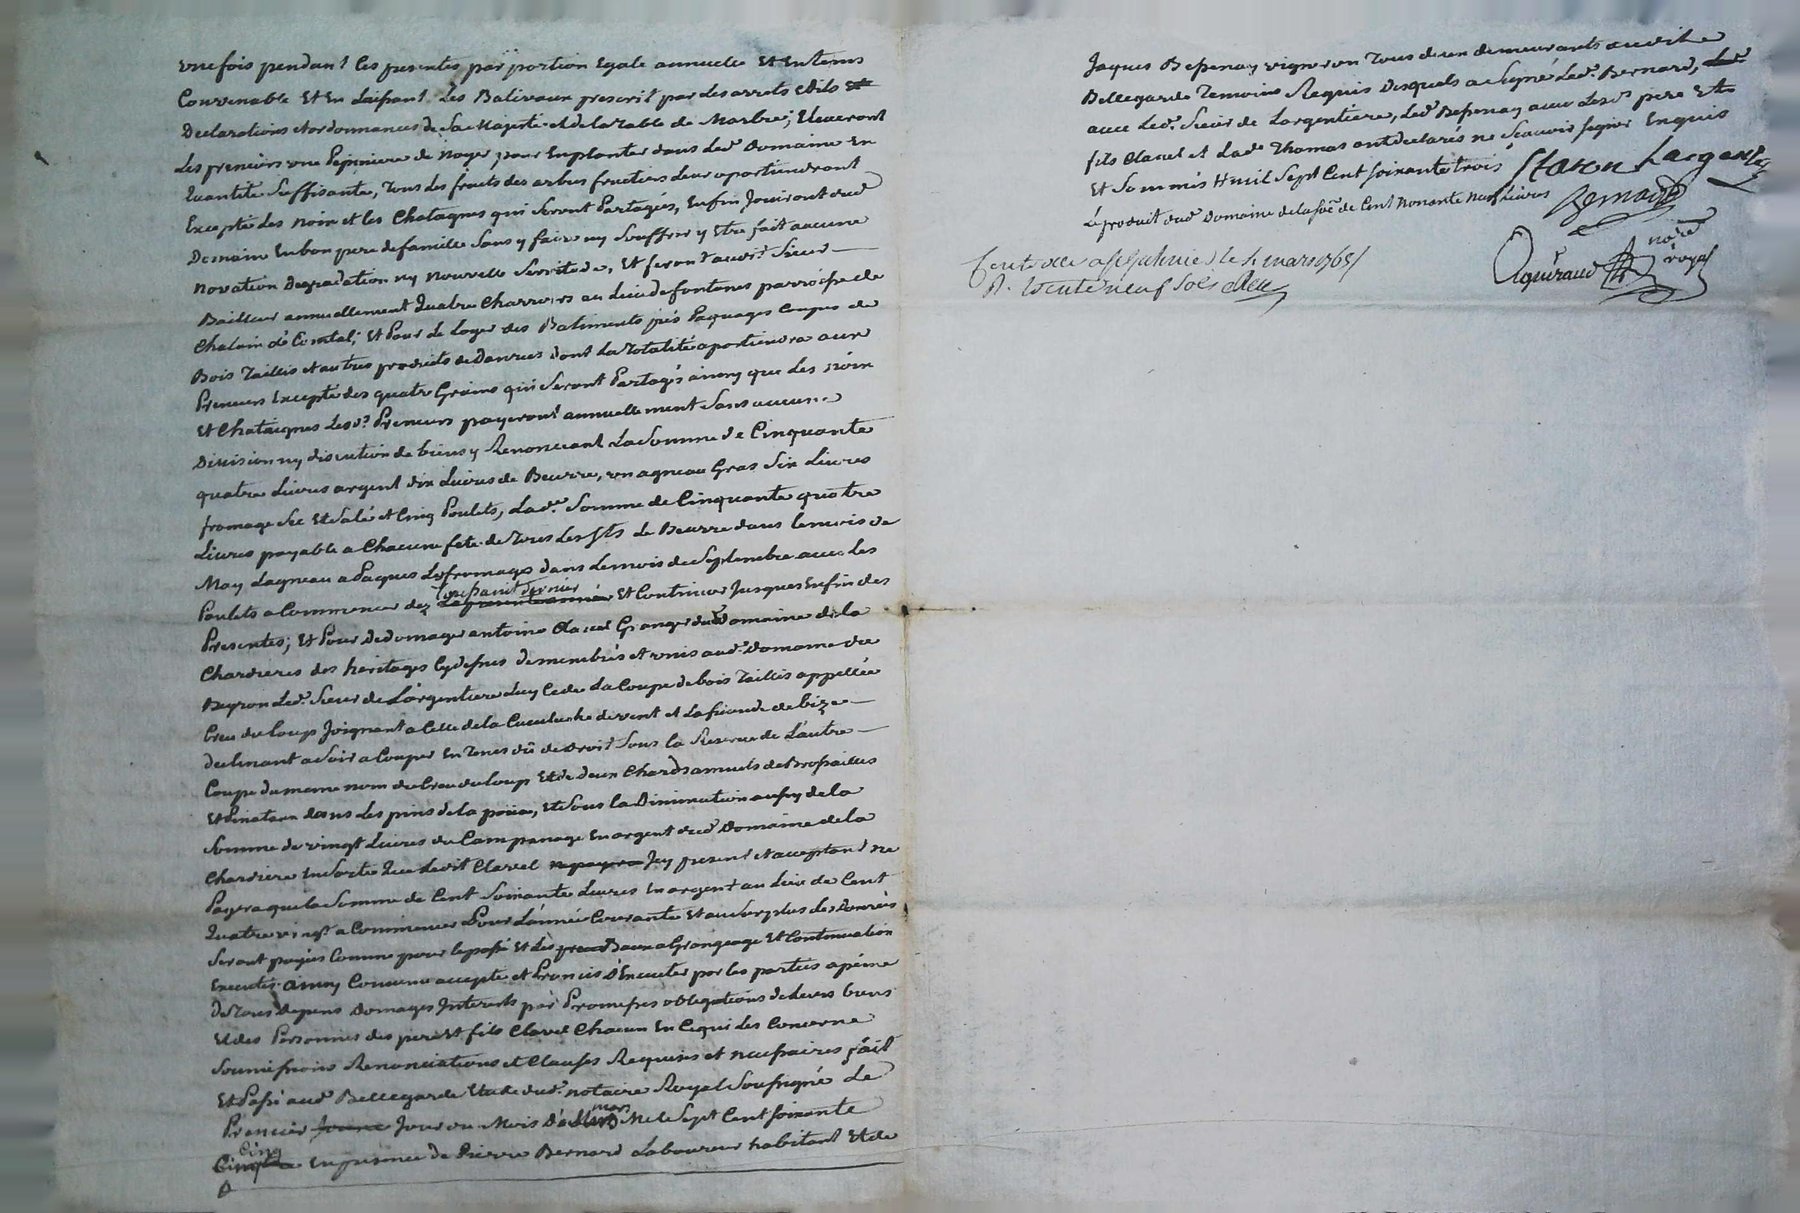 une fois pendant les presentes par portion Egale annuelle Et En tems
Convenable Et En Laissant Les Baliveaux prescrit par des arrets edits et
Declarations et ordonnances de Sa Majesté et de la table de Marbre; Eleveront
Les preneurs une Pepiniere de Noyer pour En planter dans Led. Domaine En
Quantité Suffisante, Tous des fruits des arbres fruitiers leur apartiendront
Excepté des noix et les Chatagnes qui Seront Partagés, Enfin Jouiront dud
Domaine En bon pere de famille Sans y faire ny Souffrir y Etre fait aucune
novation degradation ny nouvelle Servitude, Et feront audit Sieur
Bailleur annuellement Quatre Charrois au Lieu de fontanes parroisse de
Chalain de Comtal; Et Pour Le Loyer des Batiments prés Paquages Coupes de
Bois Taillis et autres produits et danrées dont La totalité apartiendra aux
Preneurs Excepté des quatre Grains qui Seront Partagés ainsy que Les noix
Et Chataignes Lesd. Preneurs payeront annuellement Sans aucune
Division ny discution de biens y Renonceant La Somme de Cinquante
quatre Livres argent dix Livres de Beurre, un agneau Gras Six Livres
fromage Sec Et Salé et Cinq Poulets, Lad. Somme de Cinquante quatre
Livres payable a Chacune fete de Tous Les Sts Le Beurre dans Le mois de
May Lagneau a Paques Les fromages dans Le mois de Septembre avec Les
Toussaint dernier
Poulets a Commencer dez Et Continuer Jusques Enfin des
Presentes; Et Pour Dedomager antoine Clavel Granger du Domaine de la
Chardiere des heritages Cy dessus demembrés et unis aud. Domaine du
Beyron Led. Sieur de Largentiere Luy Cede La Coupe de bois Taillis appellée
Creu du Loup Joignant a Celle de la de vent et La de bize
declinant a Soir a Couper En Tems dû de droit Sous La Reserve de Lautre
Coupe du meme nom du Creu du Loup Et de deux Chards de Brossailles
Et dans Les pins de la Et Sous la Diminution aussy de la
Somme de vingt Livres du En argent dud Domaine de la
Chardiere En Sorte Que Ledit Clavel Jcy present et acceptant ne
Payera que la Somme de Cent Soixante Livres En argent au Lieu de Cent
Quatre vingt a Commencer Pour Lannée Courante Et au Surplus des Danrées
Seront payés Comme pour le passé Et Les Baux a Grangeage Et Continuation
Executés ainsy Convenu accepté et Promis d'Executer par les parties a peine
de Tous Depens Domages Jnterests par Promesses obligations de Leurs biens
Et des Personnes des pere Et fils Clavel Chacun En Ce qui Les Concerne
Soumissions Renonciations et Clauses Requises et necessaires fait
Et Passé aud Bellegarde Etude dud. notaire Royal Soussigné Le
mars
Premier Jour du Mois Mil Sept Cent Soixante
Cinq
En presence de Pierre Bernard Laboureur habitant Et de
Jaques Bessenay vigneron Tous deux demeurants audit
Bellegarde Temoins Requis desquels a Signé Led. Bernard,
avec Led. Sieur de Largentiere, Led Bessenay avec Lesd pere Et
fils Clavel et Lad Thomas ont declarés ne Scavoir Signer Enquis
Et Sommés Mil Sept Cent Soixante trois Staron Largentiere
Le produit dud Domaine de la Sôe de Cent Nonante Neuf Livres Bernard
Controllé a St Galmier le 4 mars 1765
R. trente neuf Sols
Aguiraud nore royal